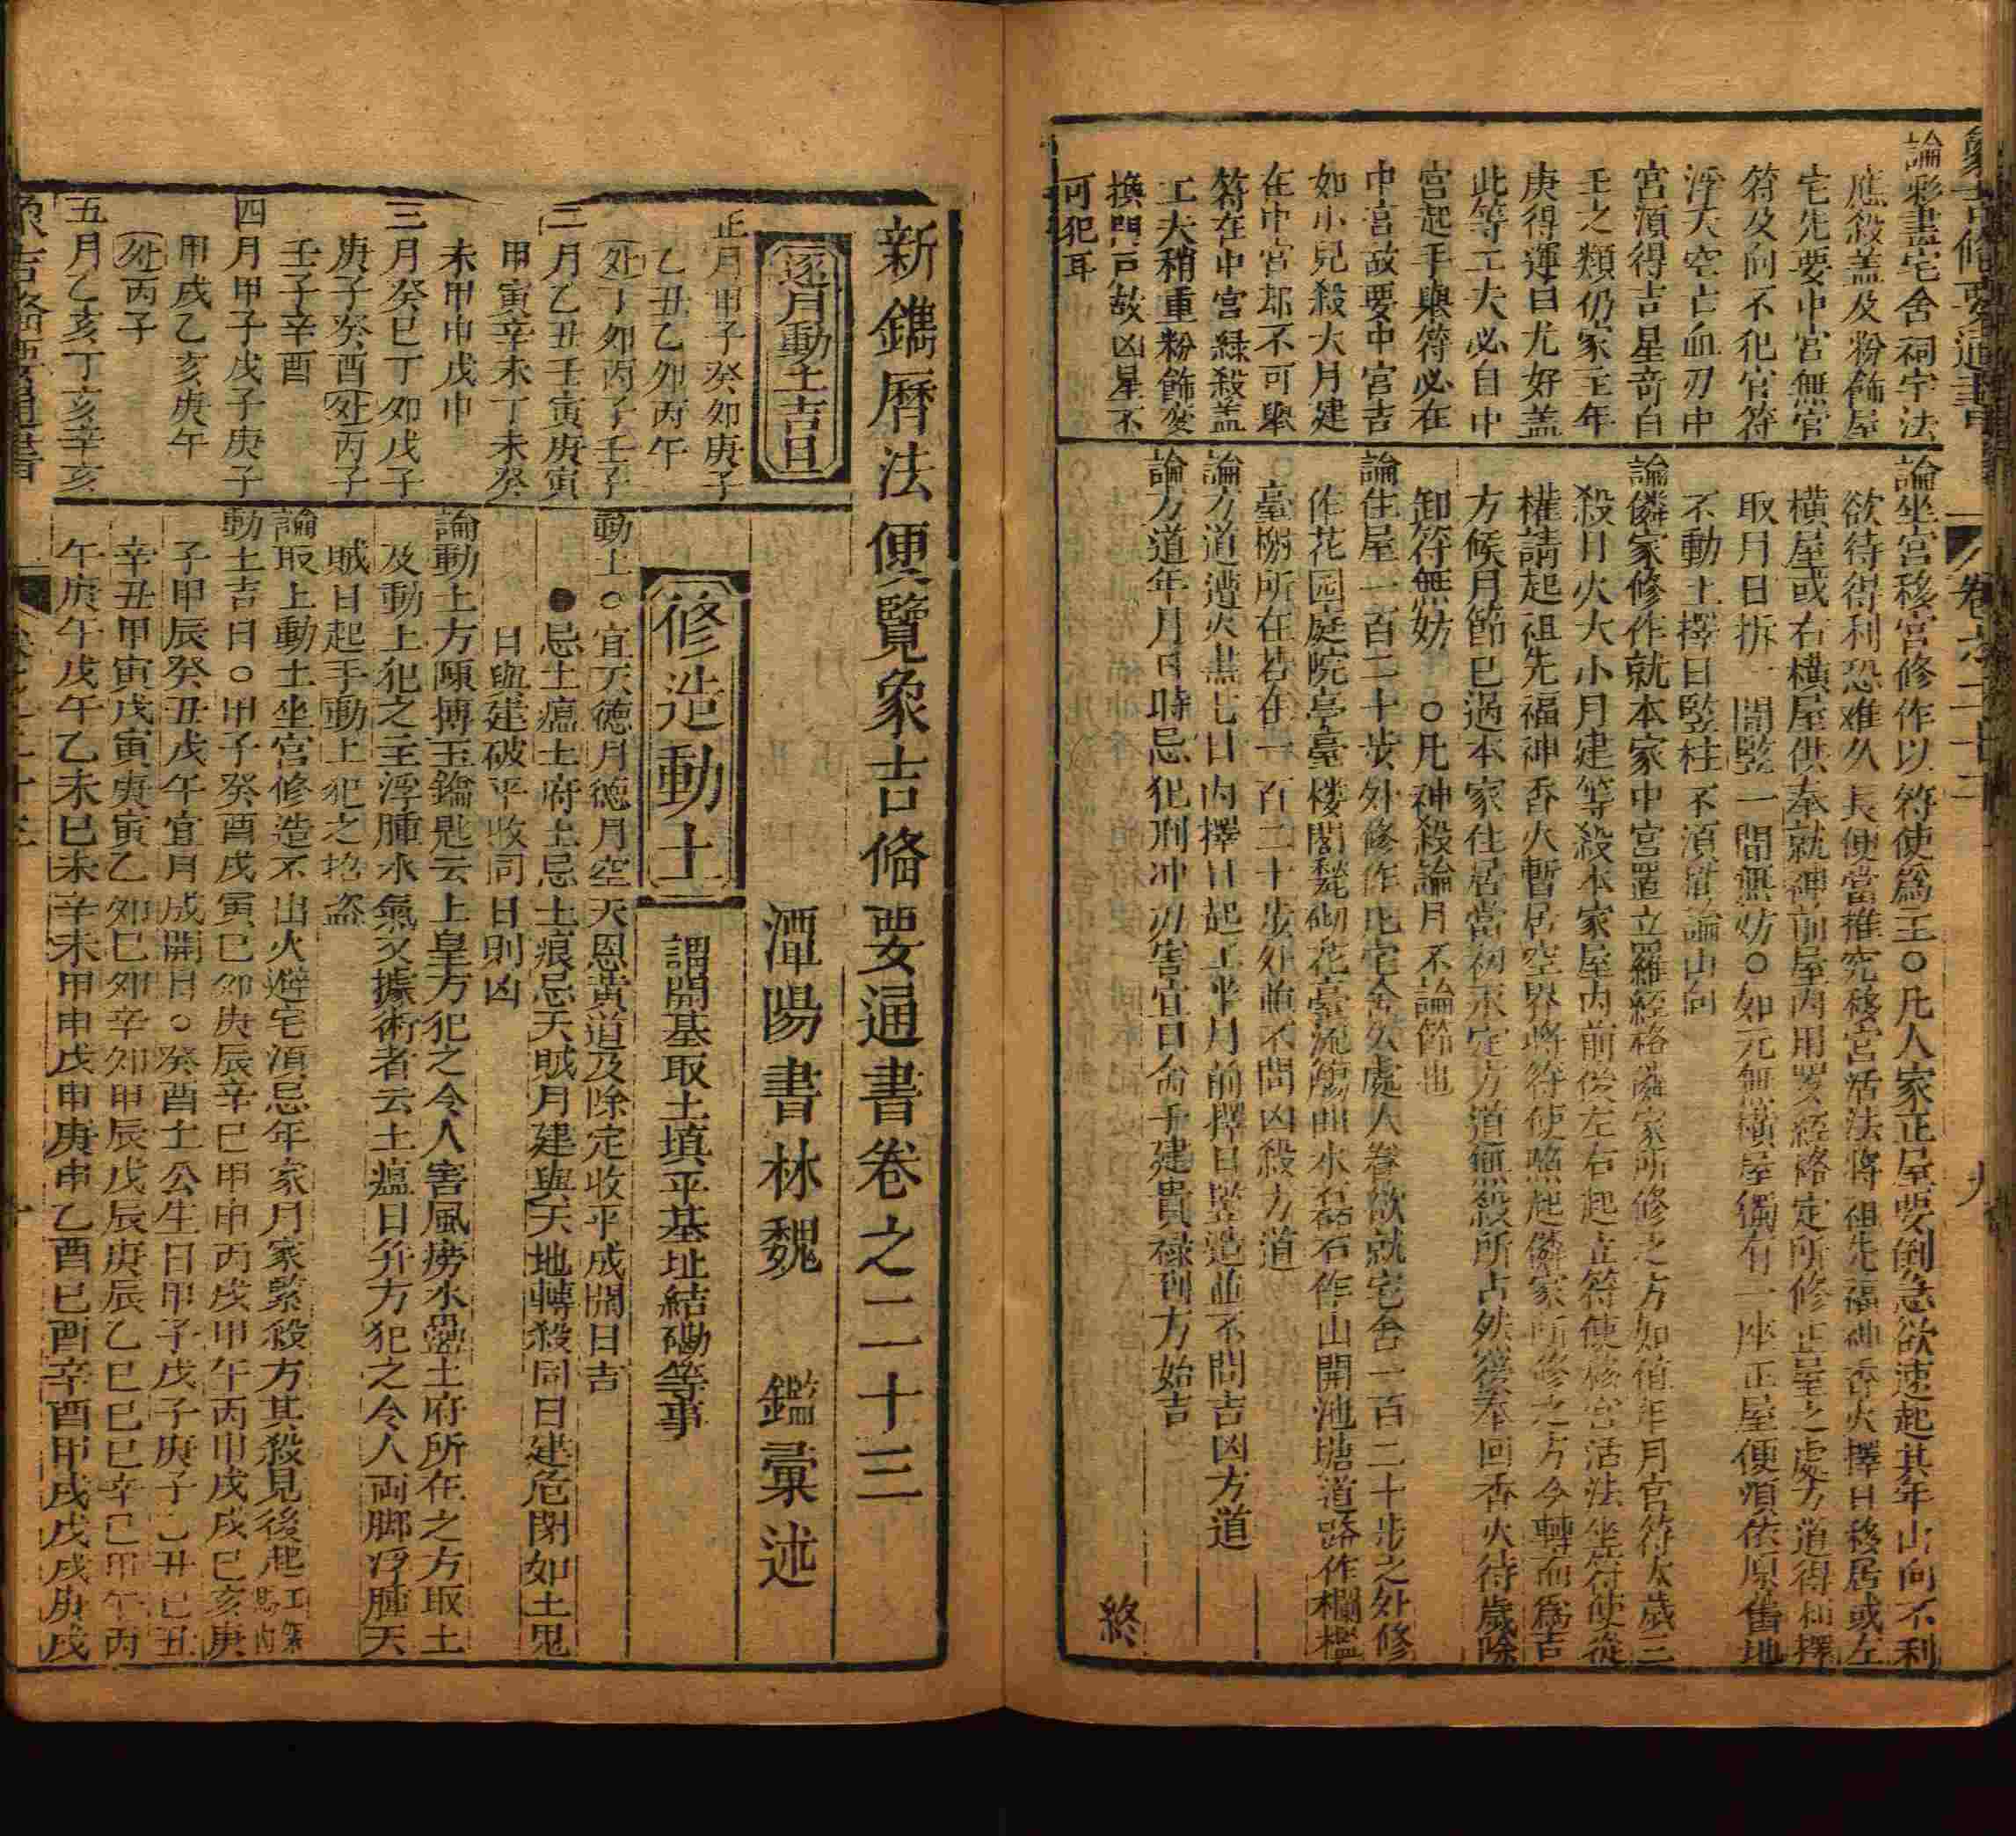 論彩畫宅舍祠宇法
應殺盖及粉飾屋
宅先要中宮無官
符及向不犯官符
浮天空亡血刃中
宮須得吉星竒白
壬之類仍家主年
庚得運曰尤好盖
此等工夫必自中
宮起手與符必在
中宮故要中宮吉
如小兒殺大月建
在中宮却不可舉
符在中宮緑殺盖
工夫稍重粉飾変
換門戸故凶星不
可犯耳
論坐宮移宮修作以符使爲主○凡人家正屋要倒急欲速起其年山向不利
欲待得利恐难久長便當推究移宮活法將祖先福神香火擇日移居或左
横屋或右横屋供奉就神前屋内用羅經格定所修正屋之處方道得利擇
取月日拆一間竪一間無妨○如元無横屋獨有一座正屋便須依原舊地
不動土擇日竪柱不須泥論山向
論隣家修作就本家中宮置立羅經格隣家所修之方如值年月官符太歲三
殺日火大小月建等殺本家屋内前後左右起立符使移宮活法坐符使從
權請起祖先福神香火暫居空界將符使照起隣家所修之方今轉而爲吉
方候月節已過本家住居當初永定方道無殺所占然後奉回香火待歲除
卸符無妨○凡神殺論月不論節也
論住屋一百二十步外修作此宅舍公處人眷欲就宅舍一百二十步之外修
作花园庭院亭臺楼閣甃砌花臺流觴曲水磊石作山開池塘道路作欄檻
臺榭所在若在一百二十步外竝不問凶殺方道
論方道遭火盡七日内擇日起工半月前擇日竪造並不問吉凶方道
論方道年月日時忌犯刑冲刃害宜日命手建貴禄到方始吉
終
新鐫曆法便覽象吉俻要通書卷之二十三
潭陽書林魏 鑑彙述
逐月動土吉日
正月甲子癸卯庚子
乙丑乙卯丙午
外丁卯丙子壬子
二月乙丑壬寅庚寅
甲寅辛未丁未癸
未甲申戊申
三月癸巳丁卯戊子
庚子癸酉外丙子
壬子辛酉
四月甲子戊子庚子
甲戌乙亥庚午
外丙子
五月乙亥丁亥辛亥
修造動土
謂開基取土填平基址結磡等事
動土○宜天德月德月空天恩黄道及除定收平成開日吉
●忌土瘟土府土忌土痕忌天賊月建與天地轉殺同日建危閉如土鬼
日與建破平收同日則凶
論動土方陳摶玉鑰匙云土皇方犯之令人害風癆水蠱土府所在之方取土
及動土犯之主浮腫水氣又據術者云土瘟日并方犯之令人両脚浮腫天
賊日起手動土犯之招盗
論取土動土坐宮修造不出火避宅須忌年家月家緊殺方其殺見後起工架馬内
動土吉日○甲子癸酉戊寅巳卯庚辰辛巳甲申丙戌甲午丙申戊戌巳亥庚
子甲辰癸丑戊午宜月成開日○癸酉土公生日甲子戊子庚子乙丑巳丑
辛丑甲寅戊寅庚寅乙卯巳卯辛卯甲辰戊辰庚辰乙巳巳巳辛巳甲午丙
午庚午戊午乙未巳未辛未甲申戊申庚申乙酉巳酉辛酉甲戌戊戌庚戌